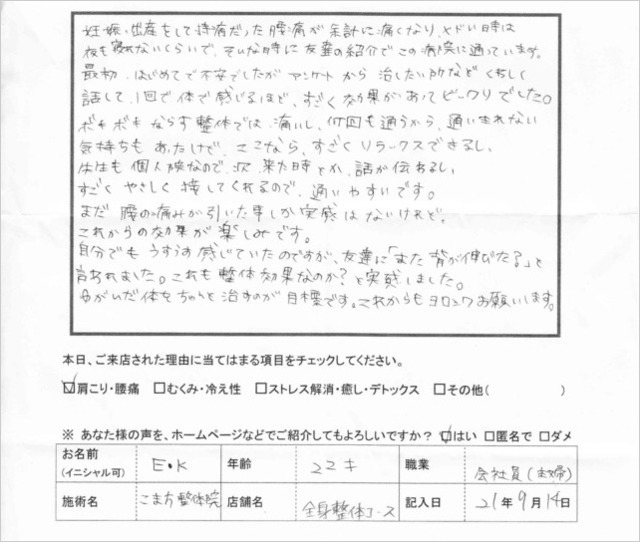 妊娠・出産をして持病だった腰痛が余計に痛くなり、ひどい時は
夜も寝れないくらいで、そんな時に友達の紹介でこの病院に通っています。
最初、はじめてで不安でしたがアンケートから治したい所などくわしく
話して、1回で体で感じるほど、すごく効果があってビックリでした。
ボキボキならす整体では、痛いし、何回も通うから、通いきれない
気持ちもあったけど、ここなら、すごくリラックスできるし、
先生も個人院なので、次、来た時とか、話が伝わるし、
すごくやさしく接してくれるので、通いやすいです。
まだ腰の痛みが引いた事しか実感はないけれど、
これからの効果が楽しみです。
自分でもうすうす感じていたのですが、友達に「また背が伸びた?」と
言われました。これも整体効果なのか?と実感しました。
ゆがんだ体をちゃんと治すのが目標です。これからもヨロシクお願いします。
本日、ご来店された理由に当てはまる項目をチェックしてください。
☑肩こり・腰痛 □むくみ・冷え性 □ストレス解消・癒し・デトックス □その他( )
※ あなた様の声を、ホームページなどでご紹介してもよろしいですか? ☑はい □匿名で □ダメ
お名前 (イニシャル可) E・K 年齢 22才 職業 会社員(主婦)
施術名 こま方整体院 店舗名 全身整体コース 記入日 21年9月14日